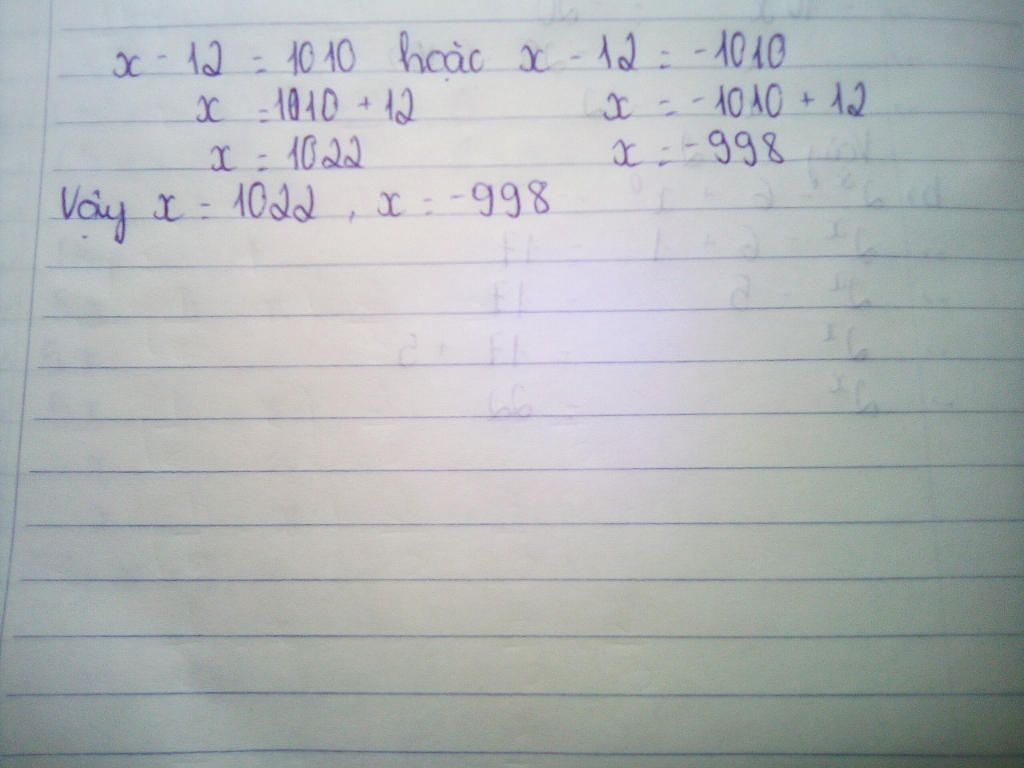 x - 12 = 1010 hoặc x - 12 = -1010
x = 1010 + 12 x = -1010 + 12
x = 1022 x = -998
Vậy x = 1022, x = -998